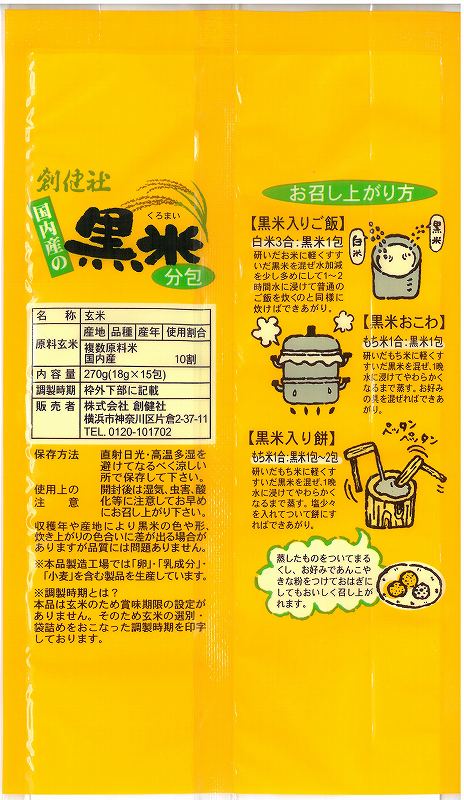 創健社
国内産の
くろまい
黒米
分包
名 称 玄米
原料玄米
産地 品種 産年 使用割合
複数原料米
国内産 10割
内 容 量 270g(18g×15包)
調製時期 枠外下部に記載
販 売 者 株式会社 創健社
横浜市神奈川区片倉2-37-11
TEL. 0120-101702
保存方法 直射日光・高温多湿を
避けてなるべく涼しい
所で保存して下さい。
使用上の 開封後は湿気、虫害、酸
注 意 化等に注意してお早め
にお召し上がり下さい。
収穫年や産地により黒米の色や形、
炊き上がりの色合いに差が出る場合が
ありますが品質には問題ありません。
※本品製造工場では「卵」・「乳成分」・
「小麦」を含む製品を生産しています。
※調製時期とは?
本品は玄米のため賞味期限の設定が
ありません。そのため玄米の選別・
袋詰めをおこなった調製時期を印字
しております。
お召し上がり方
【黒米入りご飯】
白米3合:黒米1包
研いだお米に軽くすす
いだ黒米を混ぜ水加減
を少し多めにして1〜2
時間水に浸けて普通の
ご飯を炊くのと同様に
炊けばできあがり。
白米
黒米
【黒米おこわ】
もち米1合:黒米1包
研いだもち米に軽くす
すいだ黒米を混ぜ、1晩
水に浸けてやわらかく
なるまで蒸す。お好み
の具を混ぜればできあ
がり。
【黒米入り餅】
もち米1合:黒米1包〜2包
研いだもち米に軽くす
すいだ黒米を混ぜ、1晩
水に浸けてやわらかく
なるまで蒸す。塩少々
を入れてついて餅にす
ればできあがり。
ペッタン
ペッタン
蒸したものをついてまる
くし、お好みであんこや
きな粉をつけておはぎに
してもおいしく召し上が
れます。